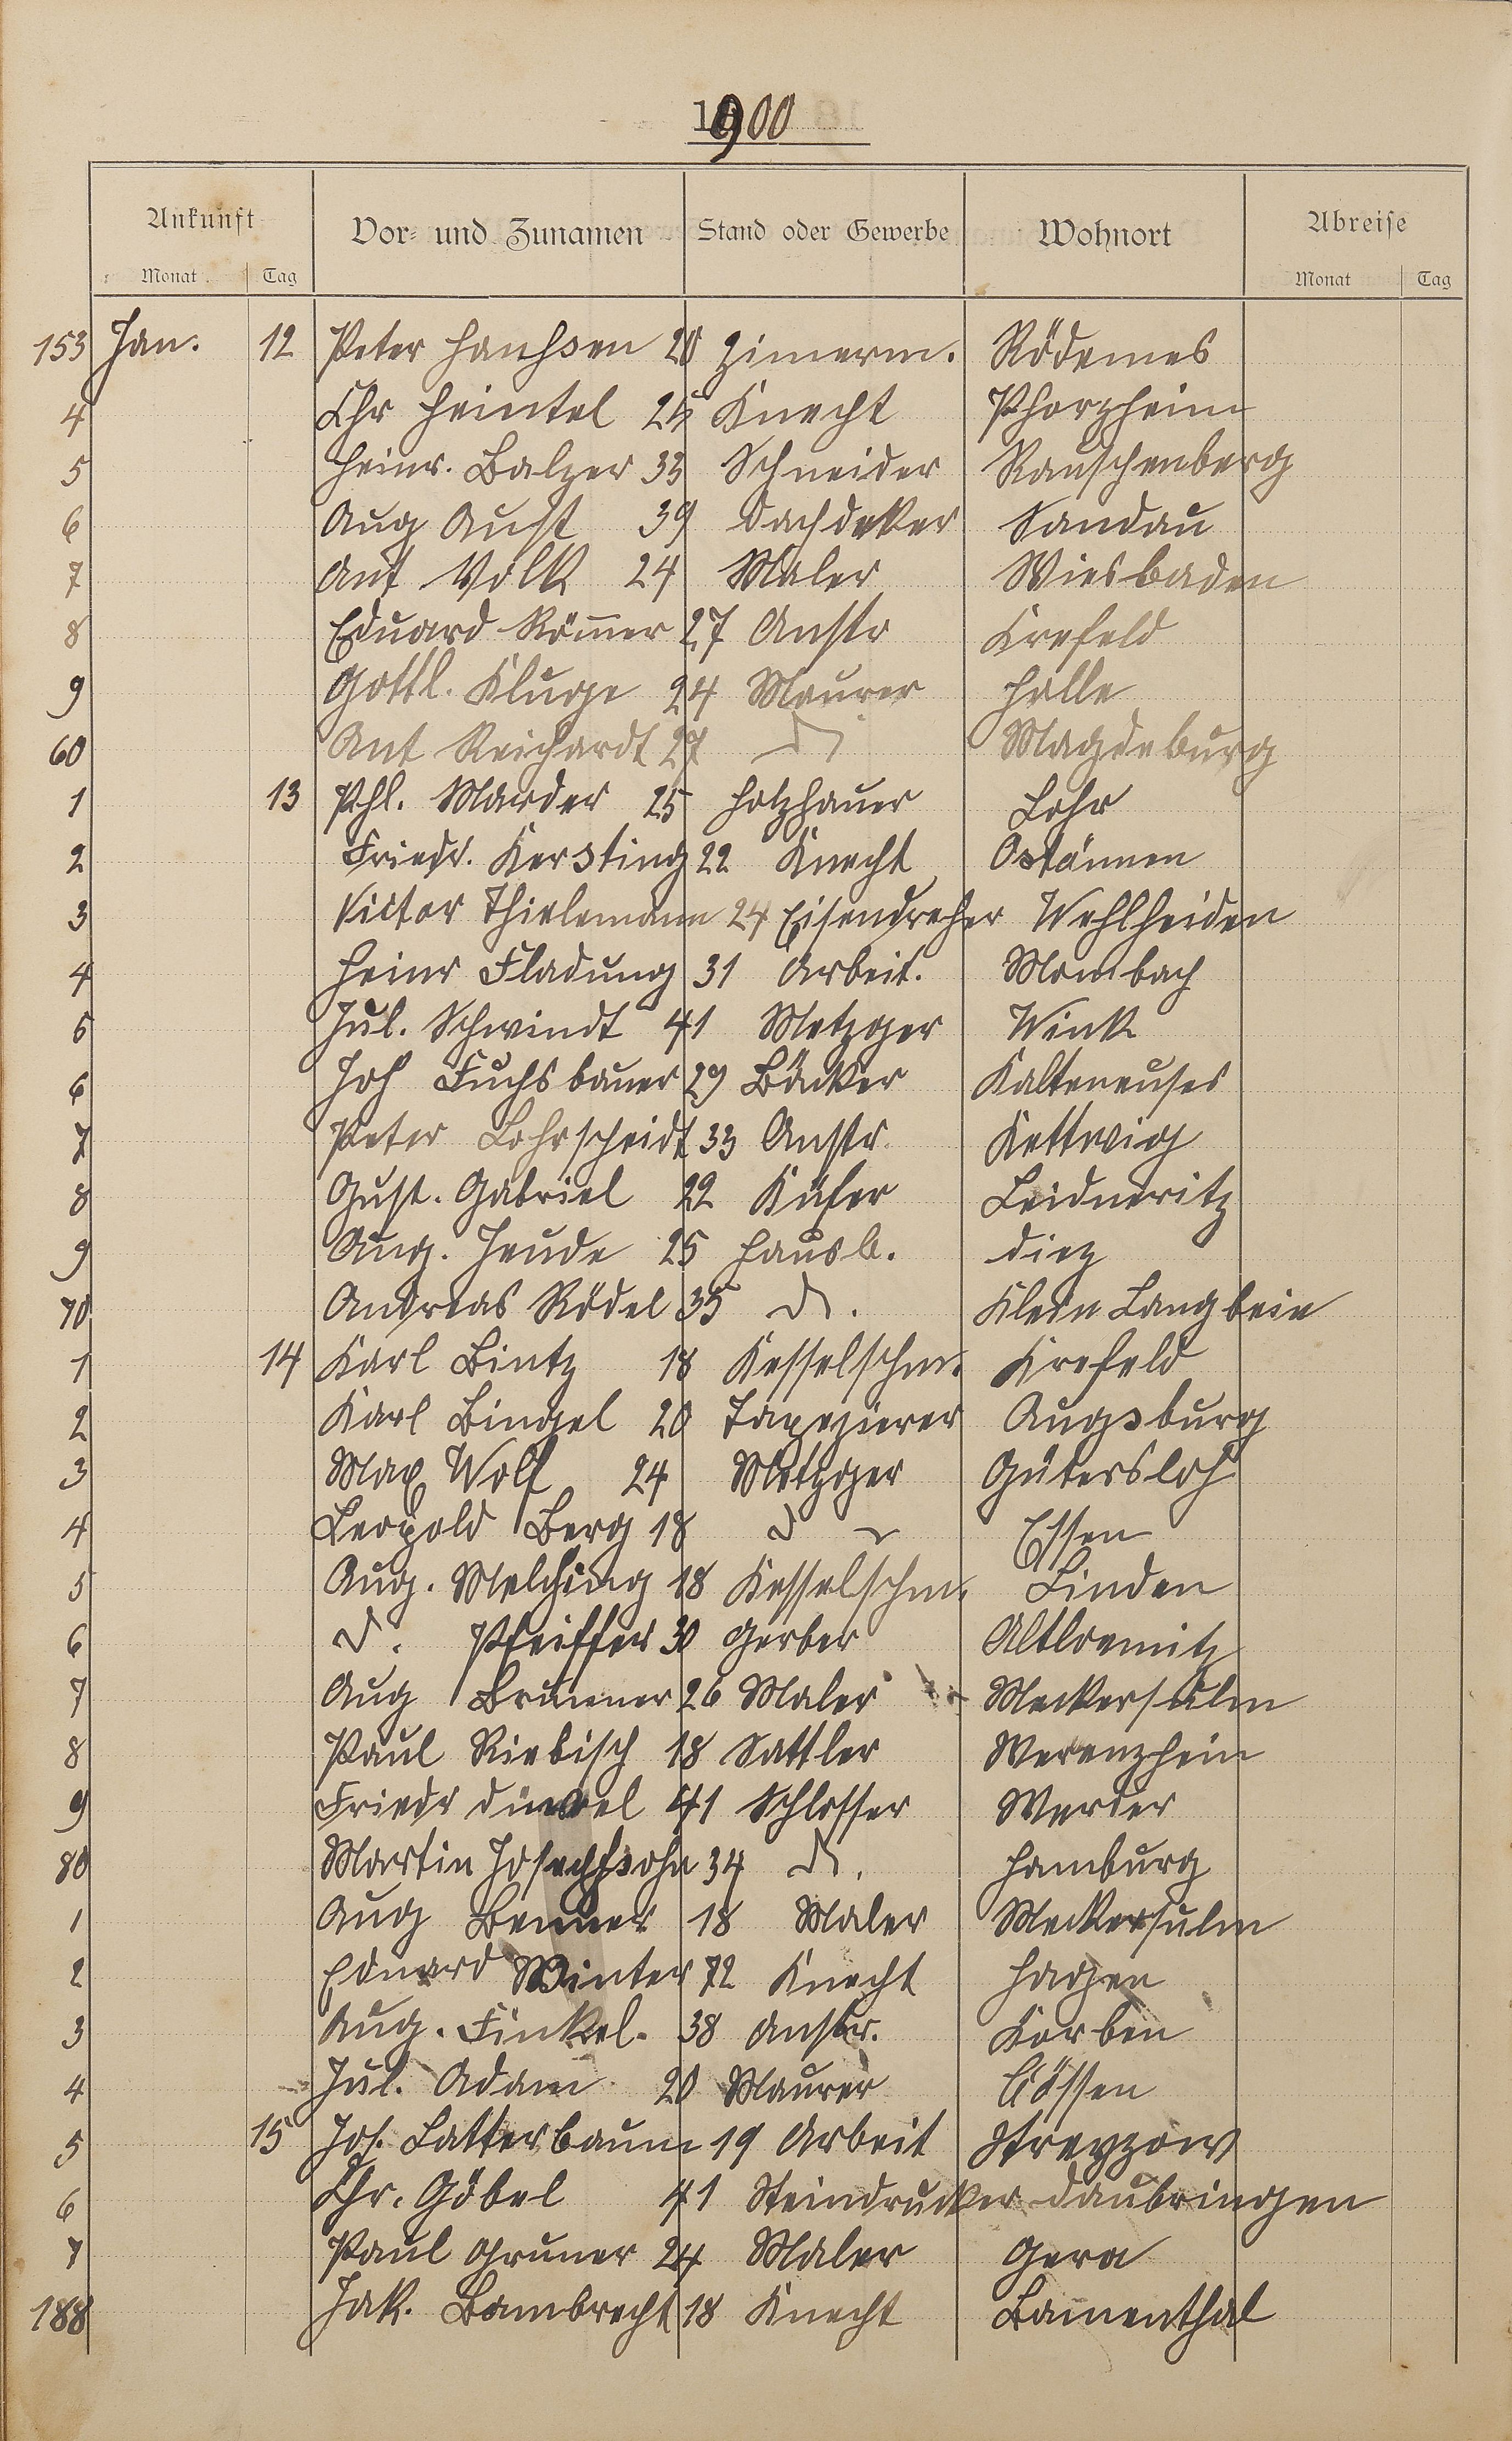 1900
Ankunft Vor- und Zunamen Stand oder Gewerbe Wohnort Abreise
Monat Tag Monat Tag
153 Jan. 12 Peter Hanssen 20 Zimerm. Rödemes
4 Chr Heintel 25 Knecht Phorzheim
5 Heinr. Balzer 33 Schneider Rauschenberg
6 Aug Aust 39 Dachdeker Sandau
7 Ant Volk 24 Maler Wiesbaden
8 Eduard Römer 27 Anstr Krefeld
9 Gottl. Kluge 24 Maurer Halle
60 Ant Reichardt 27 do Magdeburg
1 13 Phl. Marder 25 Holzhauer Lohr
2 Friedr. Kersting 22 Knecht Ostönnen
3 Victor Thielemann 24 Eisendreher Wehlheiden
4 Heinr Fladung 31 Arbeit. Mombach
5 Jul. Schwindt 41 Metzger Wink
6 Joh Fuchsbauer 29 Bäcker Kalteneuses
7 Peter Lohrscheidt 33 Anstr. Kettwig
8 Gust. Gabriel 22 Küfer Leidneritz
9 Aug. Heude 25 Hausb. Diez
70 Andreas Rödel 35 do. Klein Langbein
1 14 Karl Bintz 18 Kesselschm. Krefeld
2 Karl Bingel 20 Tapezierer Augsburg
3 Max Wolf 24 Metzger Gütersloh
4 Leopold Berg 18 do Essen
5 Aug. Melching 18 Kesselschm. Linden
6 do. Pfeiffer 30 Gerber
7 Aug Brunner 26 Maler Meckersulm
8 Paul Riebisch 18 Sattler Werenzhein
9 Friedr Dinkel 41 Schlosser Werder
80 Martin Josephsohn 34 do. Hamburg
1 Aug Benner 18 Maler Meckersulm
2 Eduard Winter 72 Knecht Hagen
3 Aug. Finkel. 38 Anstr. Korben
4 Jul. Adam 20 Maurer Cössen
5 15 Jos. Latterbaum 19 Arbeit
6 Chr. Göbel 41 Steindrucker Daubringen
7 Paul Gruner 24 Maler Gera
188 Jak. Bambrecht 18 Knecht Bamenthal